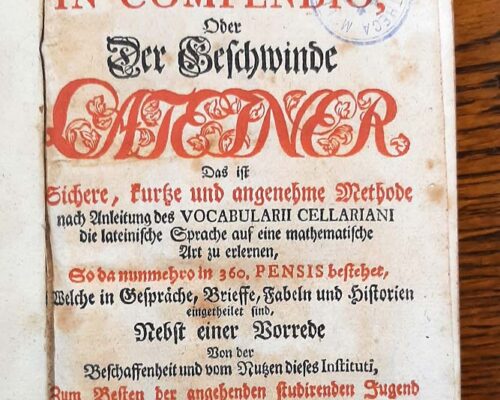 IN COMPENDIO,
Oder
Der Geschwinde
LATEINER,
Das ist
Sichere, kurtze und angenehme Methode
nach Anleitung des VOCABULARII CELLARIANI
die lateinische Sprache auf eine mathematische
Art zu erlernen,
So da nunmehro in 360. PENSIS bestehet,
Welche in Gespräche, Brieffe, Fabeln und Historien
eingetheilet sind,
Nebst einer Vorrede
Von der
Beschaffenheit und vom Nutzen dieses Instituti,
Zum Besten der angehenden studirenden Jugend